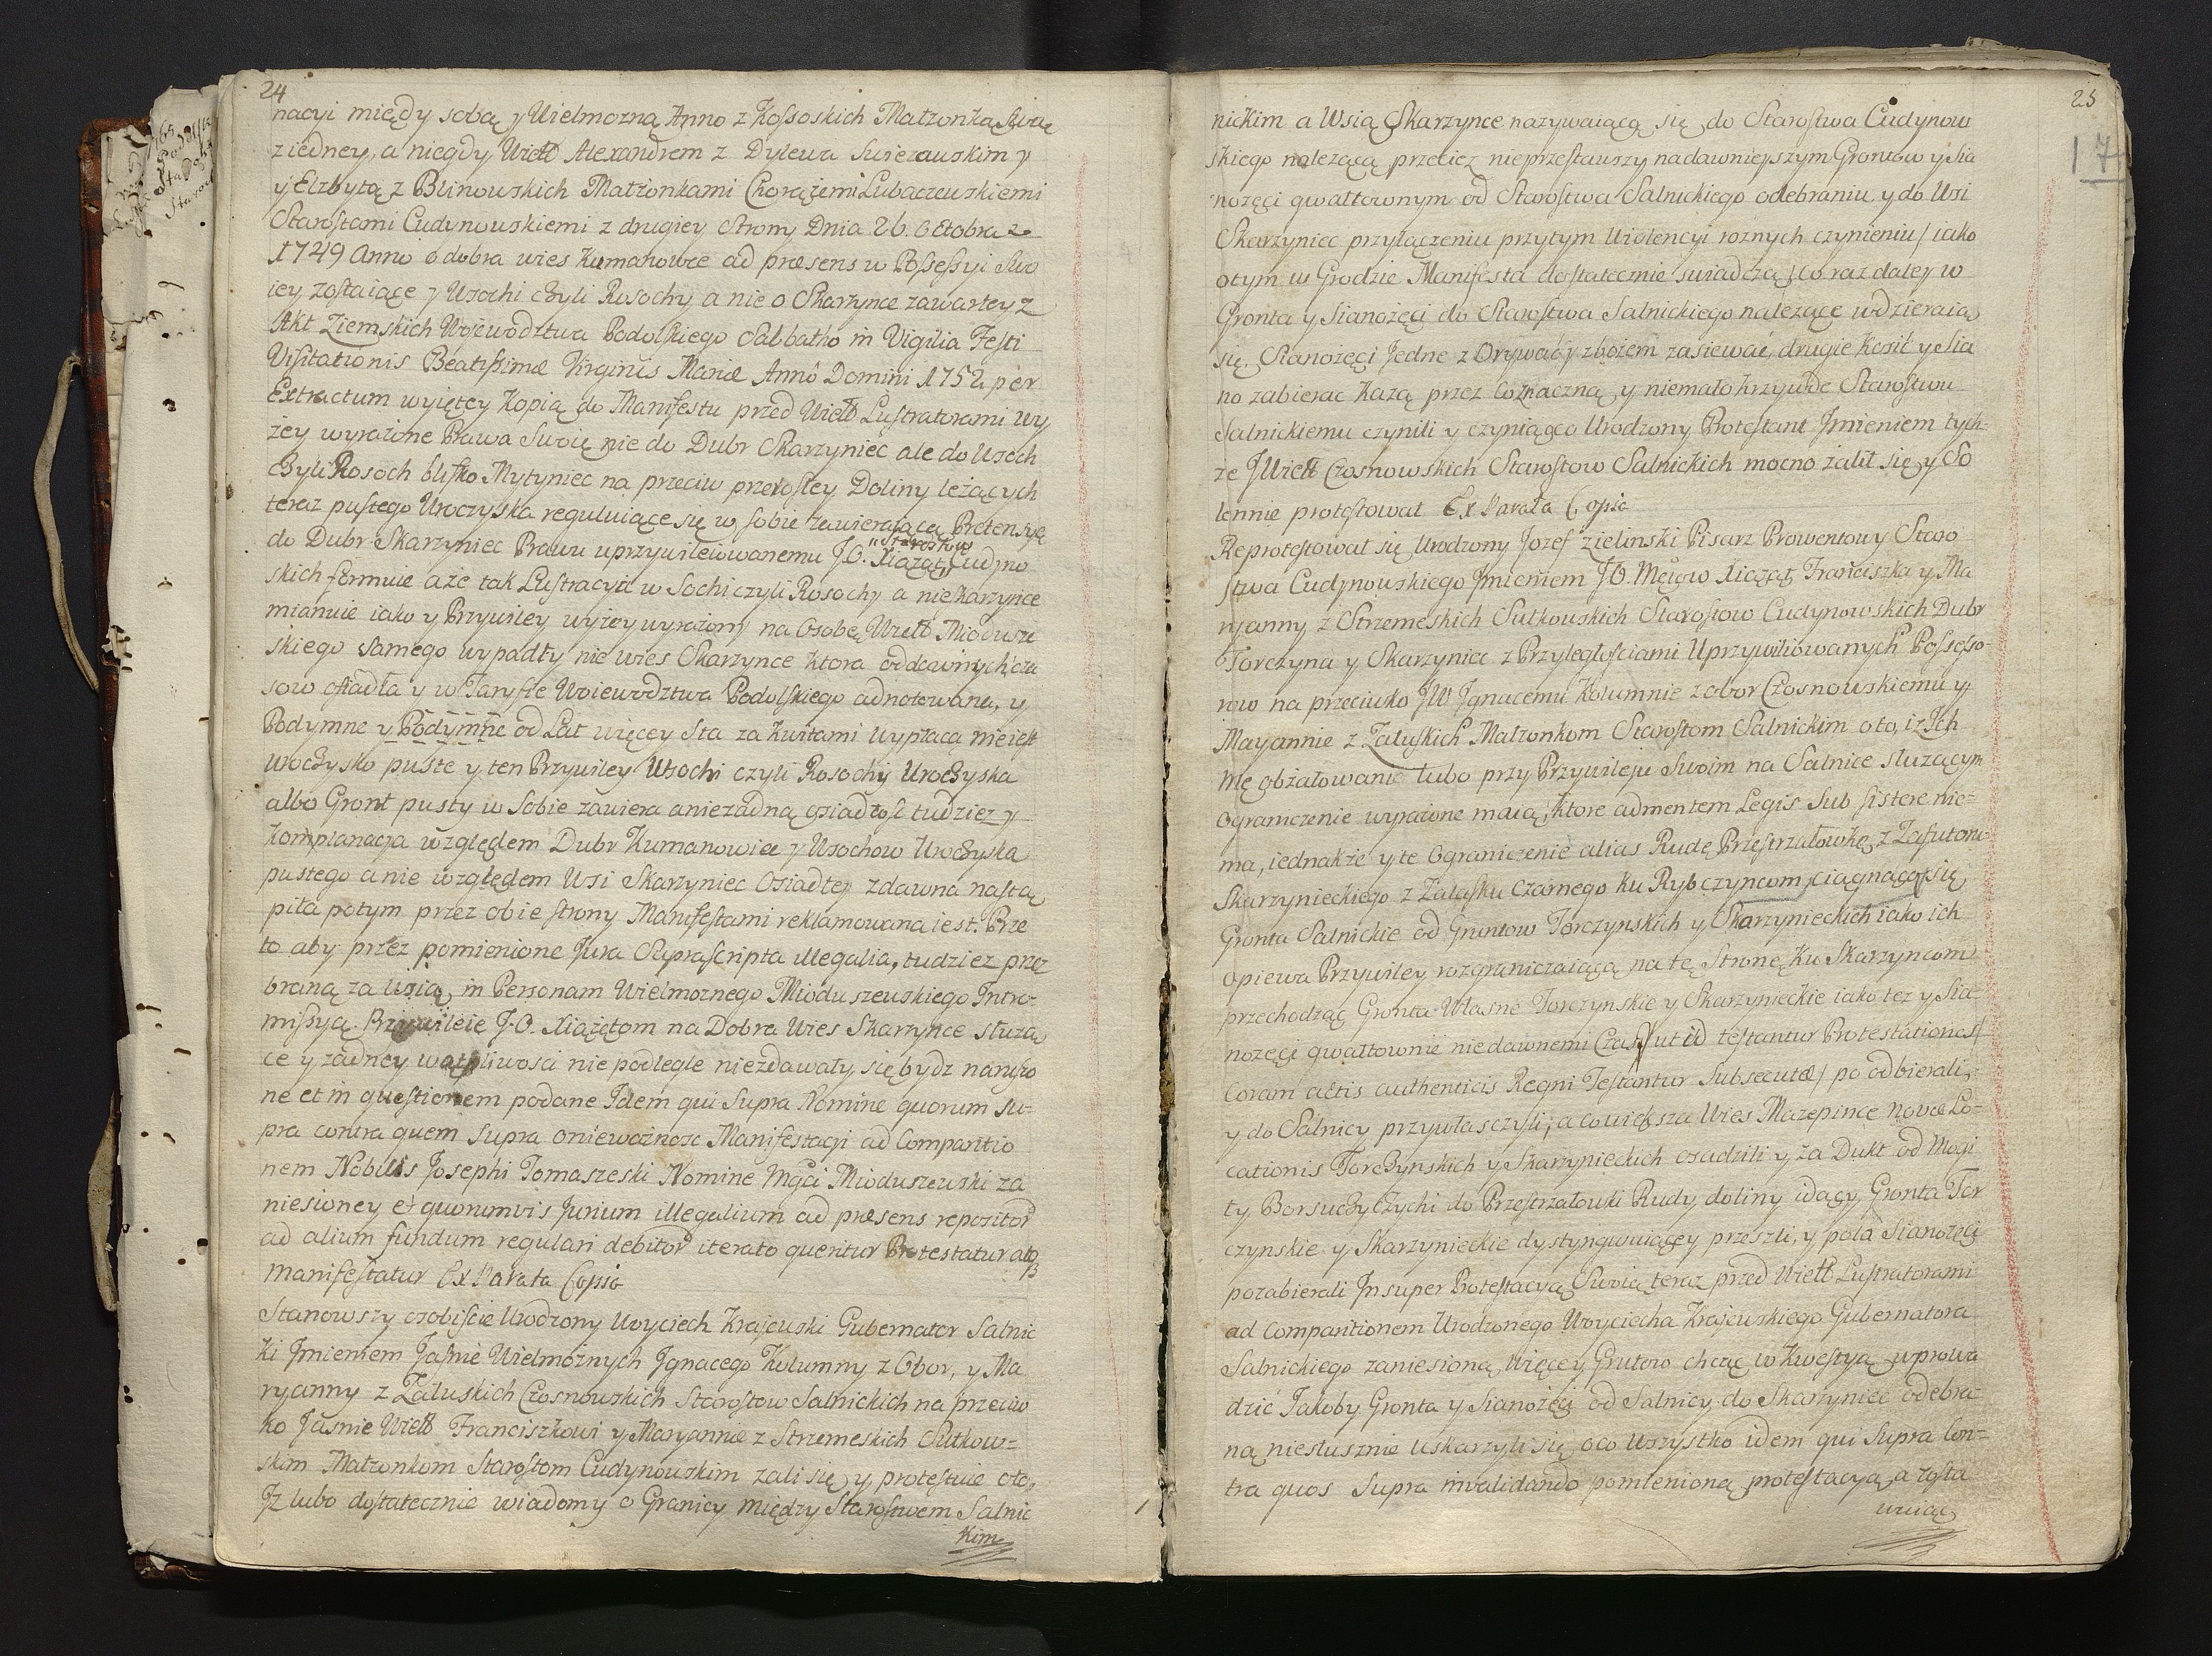 24
nacyi między sobą y Wielmozną Anno z Kossoskich Małzonką Swą
z iedney, a niegdy Wielb Alexandrem z Dylewa Swiezawskim y
y Elzbytą z Blinowskich Małżonkami Chorążemi Lubaczewskiemi
Starostami Cudynowskiemi z drugiey Strony Dnia 26. Octobra
1749 Anno o dobra wies Kumanowce ad præsens w Possessyi Swo
iey zostaiące y Wsochi czyli Rosochy a nie o Skarzynce zawartey z
Akt Ziemskich Wojewodztwa Podolskiego Sabbatho in Vigilia Festi
Visitationis Beatissimæ Virginis Mariæ Anno Domini 1752 per
Extractum wyiętey Kopią do Manifestu przed Wielb Lustratorami wy
zey wyrażone Prawa Swoie nie do Dubr Skarzyniec ale do Wsoch
czyli Rosoch blisko Mytyniec na przeciw przerosłey Doliny leżących
teraz pustego Uroczyska reguluiące się w sobie zawieraiącą Pretensyę
do Dubr Skarzyniec Prawu uprzywileiowanemu J.O. Xiążąt Starostow Cudyno
skich formuie a że tak Lustracyia w Sochi czyli Rosochy a nie Skarzynce
mianuie iako y Przywiley wyżey wyrażony na Osobę Wielb Mioduszew
skiego Samego wypadły nie wies Skarzynce ktora od dawnych cza
sow osiadła y w Taryfie Woiewodztwa Podolskiego adnotowana, y
Podymne y Podymne od Lat więcey Sta za kwitami wypłaca nie iest
uroczysko puste y ten Przywiley Wsochi czyli Rosochy Uroczyska
albo Gront pusty w Sobie zawiera a nie zadną osiadłosc tudziez y
komplanacja względem Dubr Kumanowiec y Wsochow Uroczyska
pustego a nie względem Wsi Skarzyniec Osiadłey zdawna nastą
piła potym przez obie strony Manifestami reklamowana iest. Prze
to aby przez pomienione Jura Suprascripta illegalia, tudziez przez
braną za Wsią in Personam Wielmoznego Mioduszewskiego Intro-
missyą Przywileie J.O. Xiążętom na Dobra Wies Skarzynce służą
ce y żadney wątpliwosci nie podległe niezdawały się bydz naruszo
ne et in questionem podane Idem qui Supra Nomine quorum su-
pra contra quem supra o nieważnosc Manifestacyi ad Comparitio
nem Nobilis Josephi Tomaszeski Nomine Mgci Mioduszewski za
niesioney et quorumvis Jurium illegalium ad præsens repositor
ad alium fundum regulari debitor iterato queritur Protestatur atq
manifestatur Ex Parata Copia
Stanowszy osobiscie Urodzony Woyciech Krajewski Gubernator Salnic
ki Imieniem Jasnie Wielmożnych Ignacego Kolumny z Obor, y Ma
ryanny z Załuskich Czosnowskich Starostow Salnickich na przeciw
ko Jasnie Wielb Franciszkowi y Maryannie z Strzemeskich Sułkow-
skim Małzonkom Starostom Cudynowskim zali się y protestuie oto,
Iz lubo dostatecznie wiadomy o Granicy między Starostwem Salnic
kim
25
17
nickim a Wsią Skarzynce nazywaiącą się do Starostwa Cudynow
skiego nalezącą przeciez nieprzestawszy nadawniejszym Grontow y Sia
nozęci gwałtownym od Starostwa Salnickiego odebraniu y do Wsi
Skarzyniec przyłączeniu przytym Wiolencyi roznych czynieniu / iako
o tym w Grodzie Manifesta dostatecznie swiadczą / co raz daley w
Gronta y Sianożęci do Starostwa Salnickiego nalezące wdzieraią
się, Sianożęci Jedne z Orywać y zbożem zasiewać, drugie kosić y Sia
no zabierac każą przez co znaczną y niemało krzywdę Starostwu
Salnickiemu czynili y czynią o co Urodzony Protestant Imieniem tych-
że JWielb Czosnowskich Starostow Salnickich mocno żalił się y So
lennie protestował Ex Parata Copia
Reprotestował się Urodzony Jozef Zielinski Pisarz Prowentowy Staro
stwa Cudynowskiego Imieniem J.O. Mciow Xiążąt Franciszka y Ma
ryanny z Strzemeskich Sułkowskich Starostow Cudynowskich Dubr
Torczyna y Skarzyniec z Przyległosciami Uprzywiliowanych Possesso-
row na przeciwko JW Ignacemu Kolumnie z obor Czosnowskiemu y
Mayannie z Załuskich Małzonkom Starostom Salnickim o to, iż Ich
Mę obżałowani lubo przy Przywileju Swoim na Salnice służącym
Ograniczenie wyrażone maią, ktore ad mentem Legis Subsistere nie-
ma, iednakże y te Ograniczenie alias Rudę Przestrzałowkę z Zafutoru
Skarzynieckiego z Zalasku Czarnego ku Rybczyncom ciągnącą się
Gronta Salnickie od Grontow Torczynskich y Skarzynieckich iako ich
opiewa Przywiley rozgraniczaiącą na tę Stronę ku Skarzyncom
przechodząc Gronta Własne Torczynskie y Skarzynieckie iako tez y Sia-
nozęci gwałtownie niedawnemi Czasy / ut id testantur Protestationes /
Coram actis authenticis Regni Testantur Subsecutæ / po odbierali,
y do Salnicy przywłaszczyli, a co większa Wies Mazepince novæ Lo-
cationis Torczynskich y Skarzynieckich osadzili y za Dukt od Mogi
ły Borsuczy Czychi do Przestrzałowki Rudy doliny idący, Gronta Tor
czynskie y Skarzynieckie dystyngwuiącey przeszli, y pola Sianożęci
pozabierali Insuper Protestacyą Swoią teraz przed Wielb Lustratorami
ad Comparitionem Urodzonego Woyciecha Krajewskiego Gubernatora
Salnickiego zaniesioną, więcey Grutow chcąc w Kwestyą wprowa
dzić Jakoby Gronta y Sianożęci od Salnicy do Skarzyniec odebra-
ną niesłusznie uskarzyli się, o co Wszystko idem qui Supra Con-
tra quos Supra invalidando pomienioną protestacyą, a zosta
wuiąc